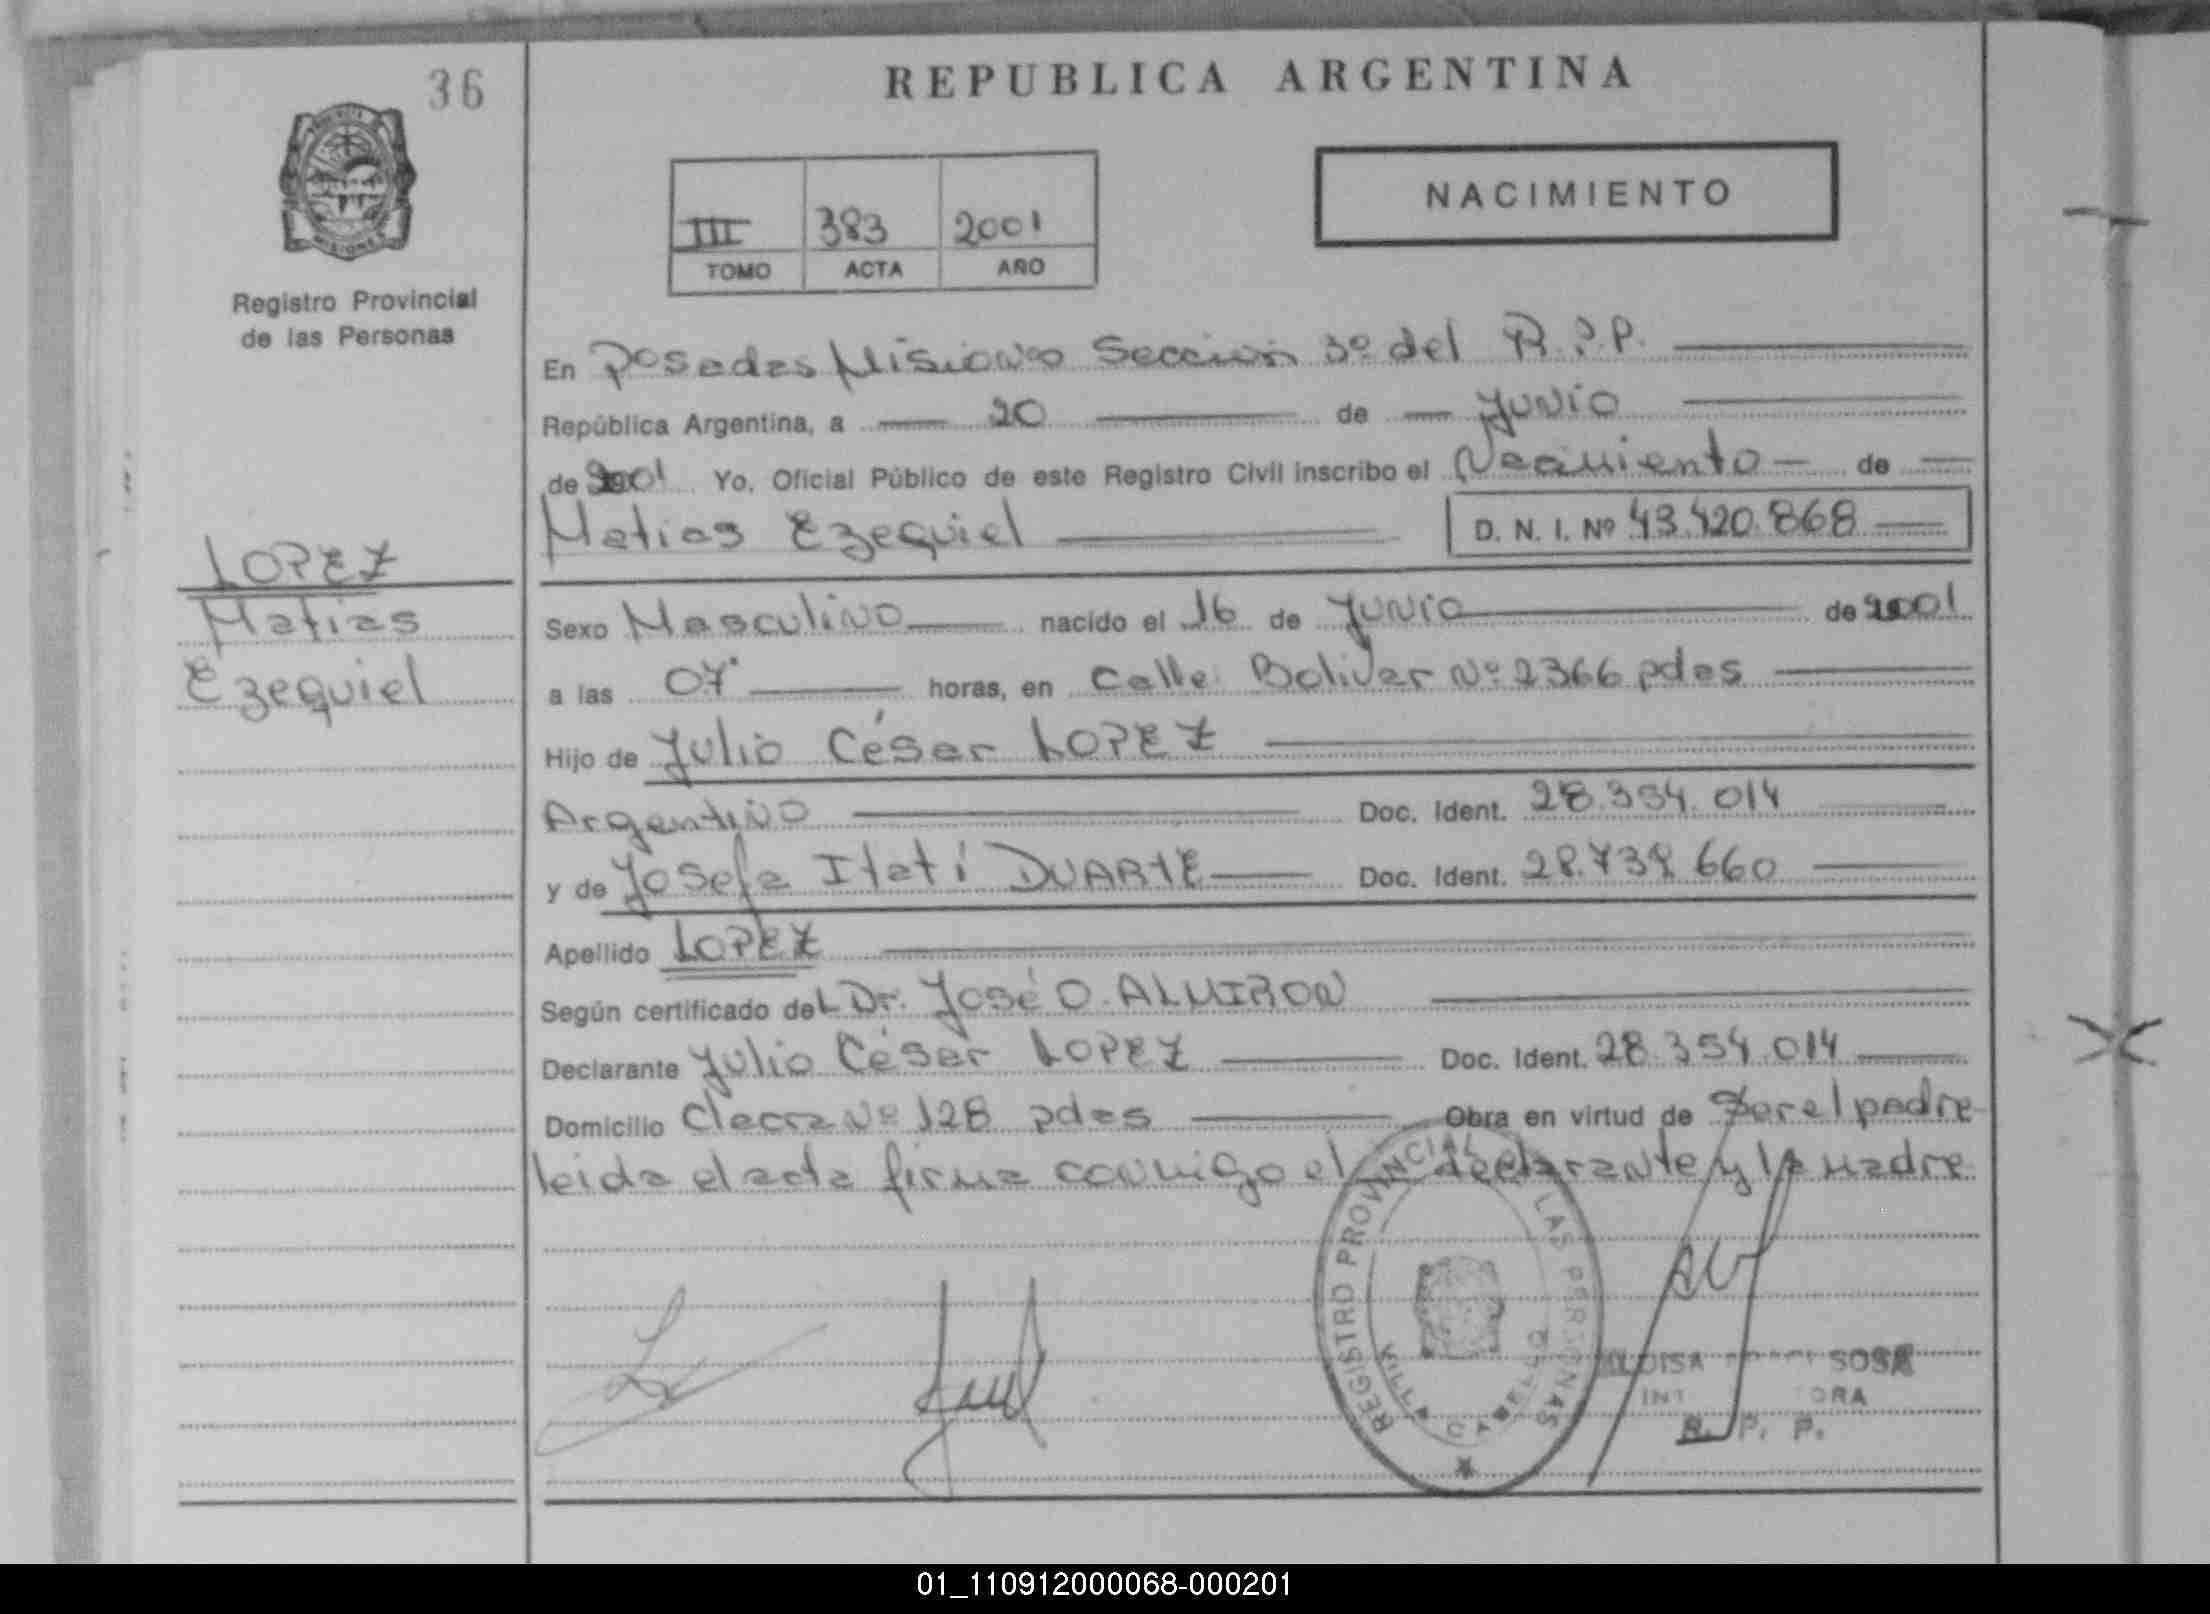 36
REPUBLICA ARGENTINA
PROVINCIA
MISIONES
Registro Provincial
de las Personas
III 383 2001
TOMO ACTA AÑO
NACIMIENTO
En Posadas Misiones Sección 3º del R.P.P.
República Argentina, a 20 de Junio
de 2001 Yo, Oficial Público de este Registro Civil inscribo el Nacimiento de
Matias Ezequiel D. N. I. Nº 43.420.868
LOPEZ
Matias
Ezequiel
Sexo Masculino nacido el 16 de Junio de 2001
a las 07 horas, en Calle Bolivar Nº 2366 pdas
Hijo de Julio César LOPEZ
Argentino Doc. Ident. 28.354.014
y de Josefa Itatí DUARTE Doc. Ident. 28.739.660
Apellido LOPEZ
Según certificado del Dr. José O. ALMIRON
Declarante Julio César LOPEZ Doc. Ident. 28.354.014
Domicilio Chacra Nº 128 pdas Obra en virtud de Ser el padre
leida el acta firma conmigo el declarante y la madre
REGISTRO PROVINCIAL LAS PERSONAS
VILLA CABELLO
SOSA
R. P. P.
01_110912000068-000201